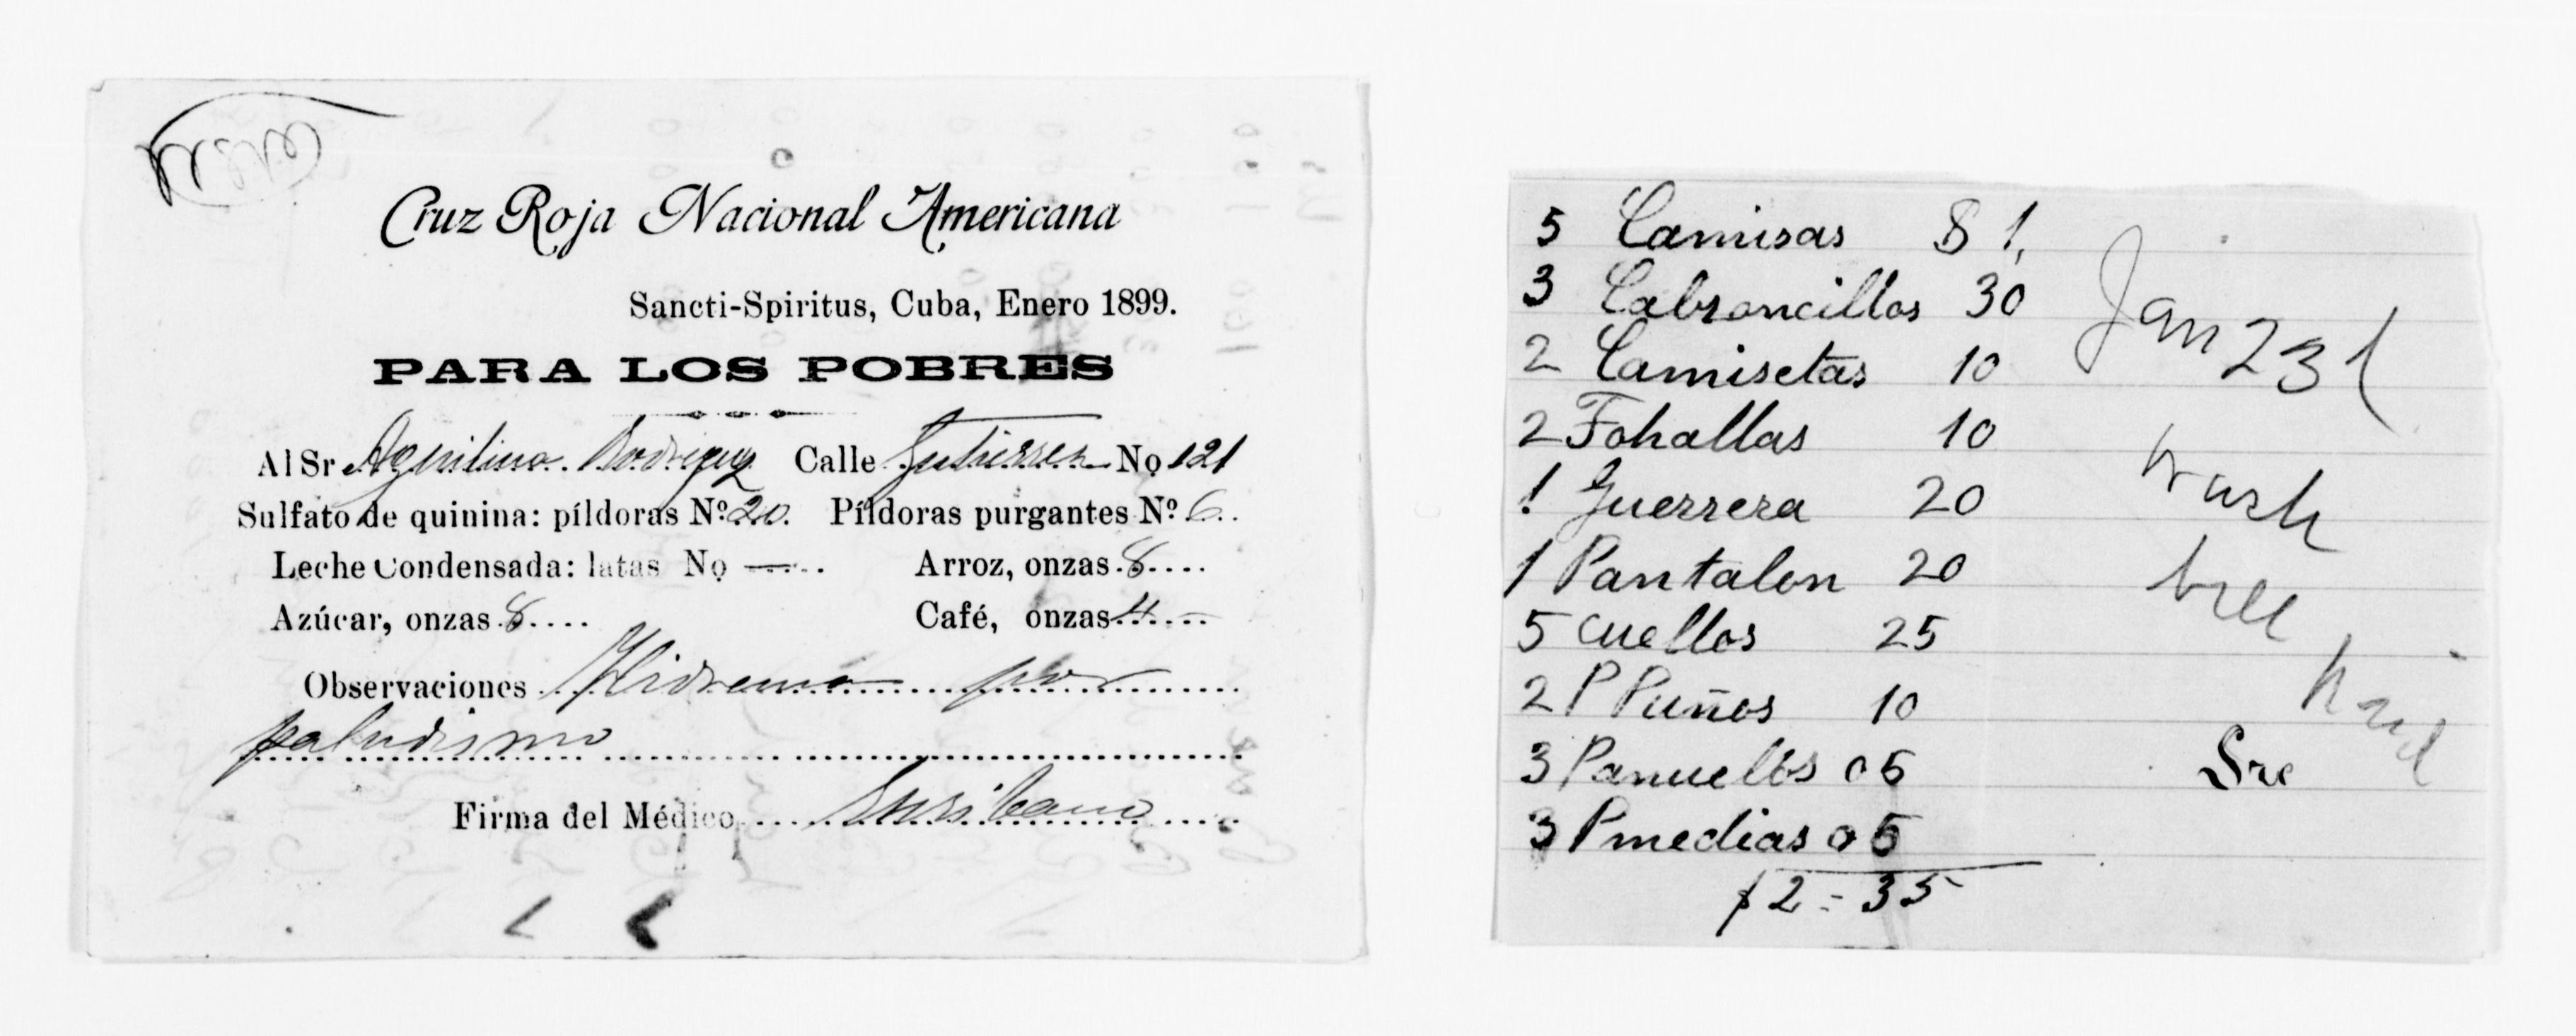 Cruz Roja Nacional Americana
Sancti-Spiritus, Cuba, Enero 1899.
PARA LOS POBRES
Al Sr Aquilino Rodriguez Calle Gutierrez No 121
Sulfato de quinina: píldoras Nº 20. Píldoras purgantes Nº 6
Leche Condensada: latas No — Arroz, onzas 8
Azúcar, onzas 8 Café, onzas 4
Observaciones Hidremia por
paludismo
Firma del Médico
5 Camisas $ 1,
3 Calsoncillos 30
2 Camisetas 10
2 Tohallas 10
1 Guerrera 20
1 Pantalon 20
5 Cuellos 25
2 P Puños 10
3 Panuelos 05
3 P medias 05
$2=35
Jan 23
Wash
bill
Paid